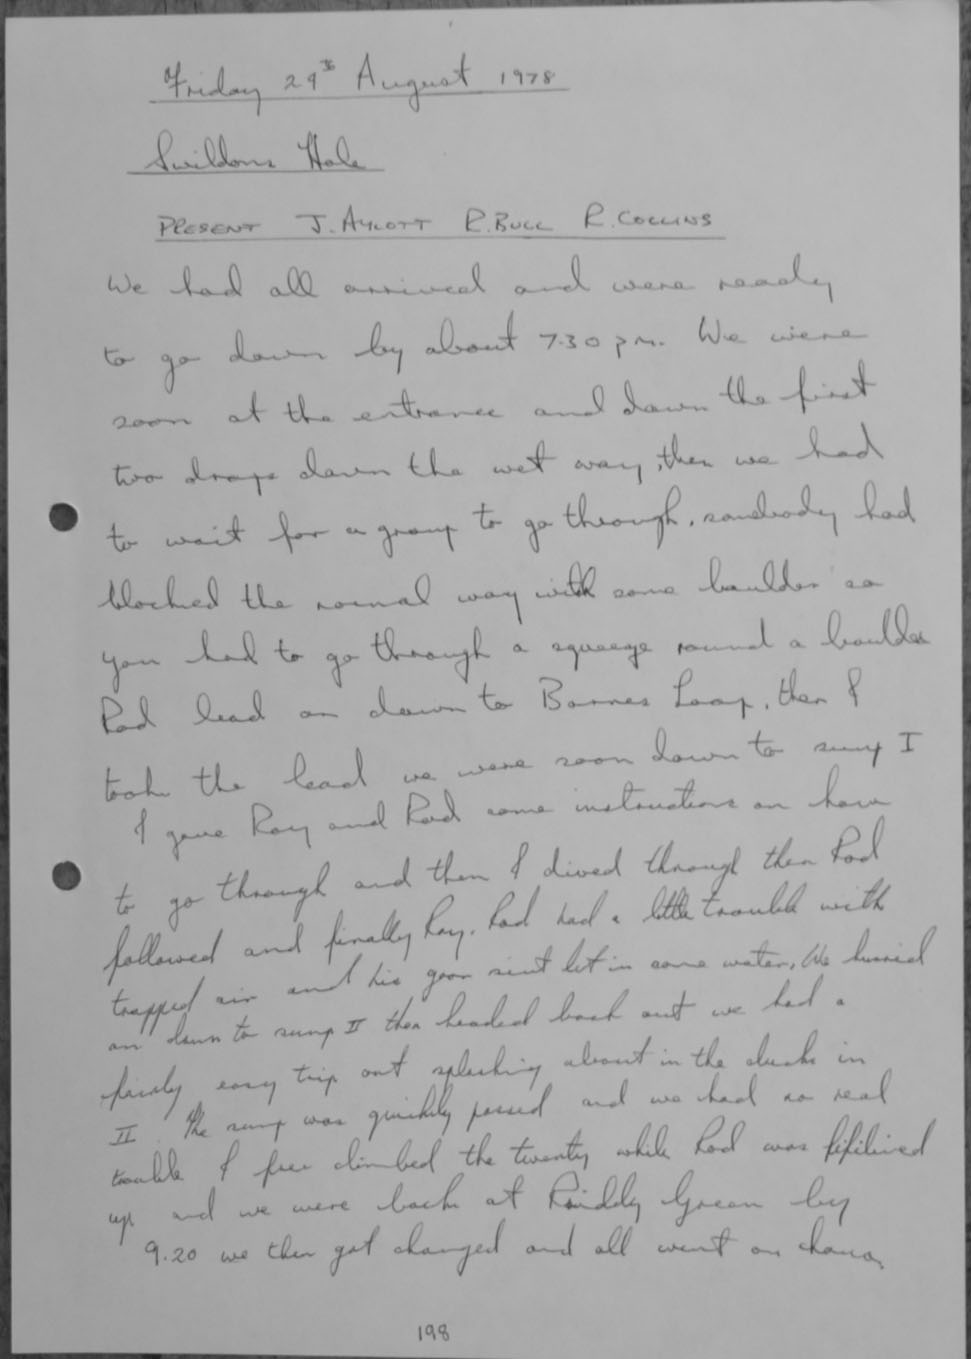 Friday 29th August 1978
Swildons Hole
PRESENT J. AYLOTT R. BULL R. COLLINS
We had all arrived and were ready
to go down by about 7.30 pm. We were
soon at the entrance and down the first
two drops down the wet way, then we had
to wait for a group to go through, somebody had
blocked the normal way with some boulder so
you had to go through a squeeze round a boulder
Rod lead on down to Barnes Loop, then I
took the lead we were soon down to sump I
I gave Roy and Rod some instructions on how
to go through and then I dived through then Rod
followed and finally Roy. Rod had a little trouble with
trapped air and his goon suit let in some water. We hurried
on down to sump II then headed back out we had a
fairly easy trip out splashing about in the ducks in
II. The sump was quickly passed and we had no real
trouble I free climbed the twenty while Rod was fifilined
up and we were back at Priddy Green by
9.20 we then got changed and all went on home.
198